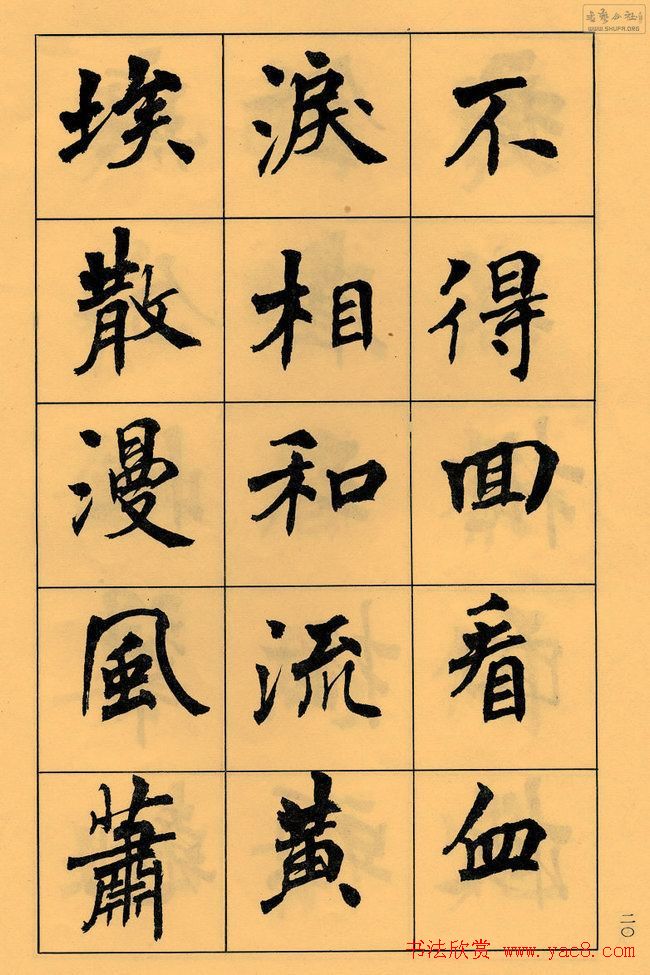 不得囬看血
淚相和流黄
埃散漫風蕭
二〇
书法欣赏 www.yac8.com
书艺公社
WWW.SHUFA.ORG